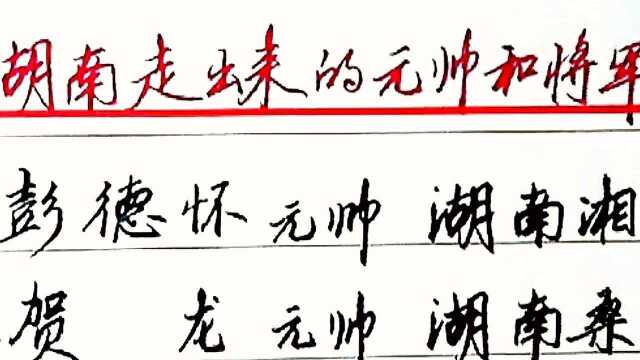 胡南走出来的元帅和将军
彭德怀元帅 湖南湘
贺 龙元帅 湖南桑